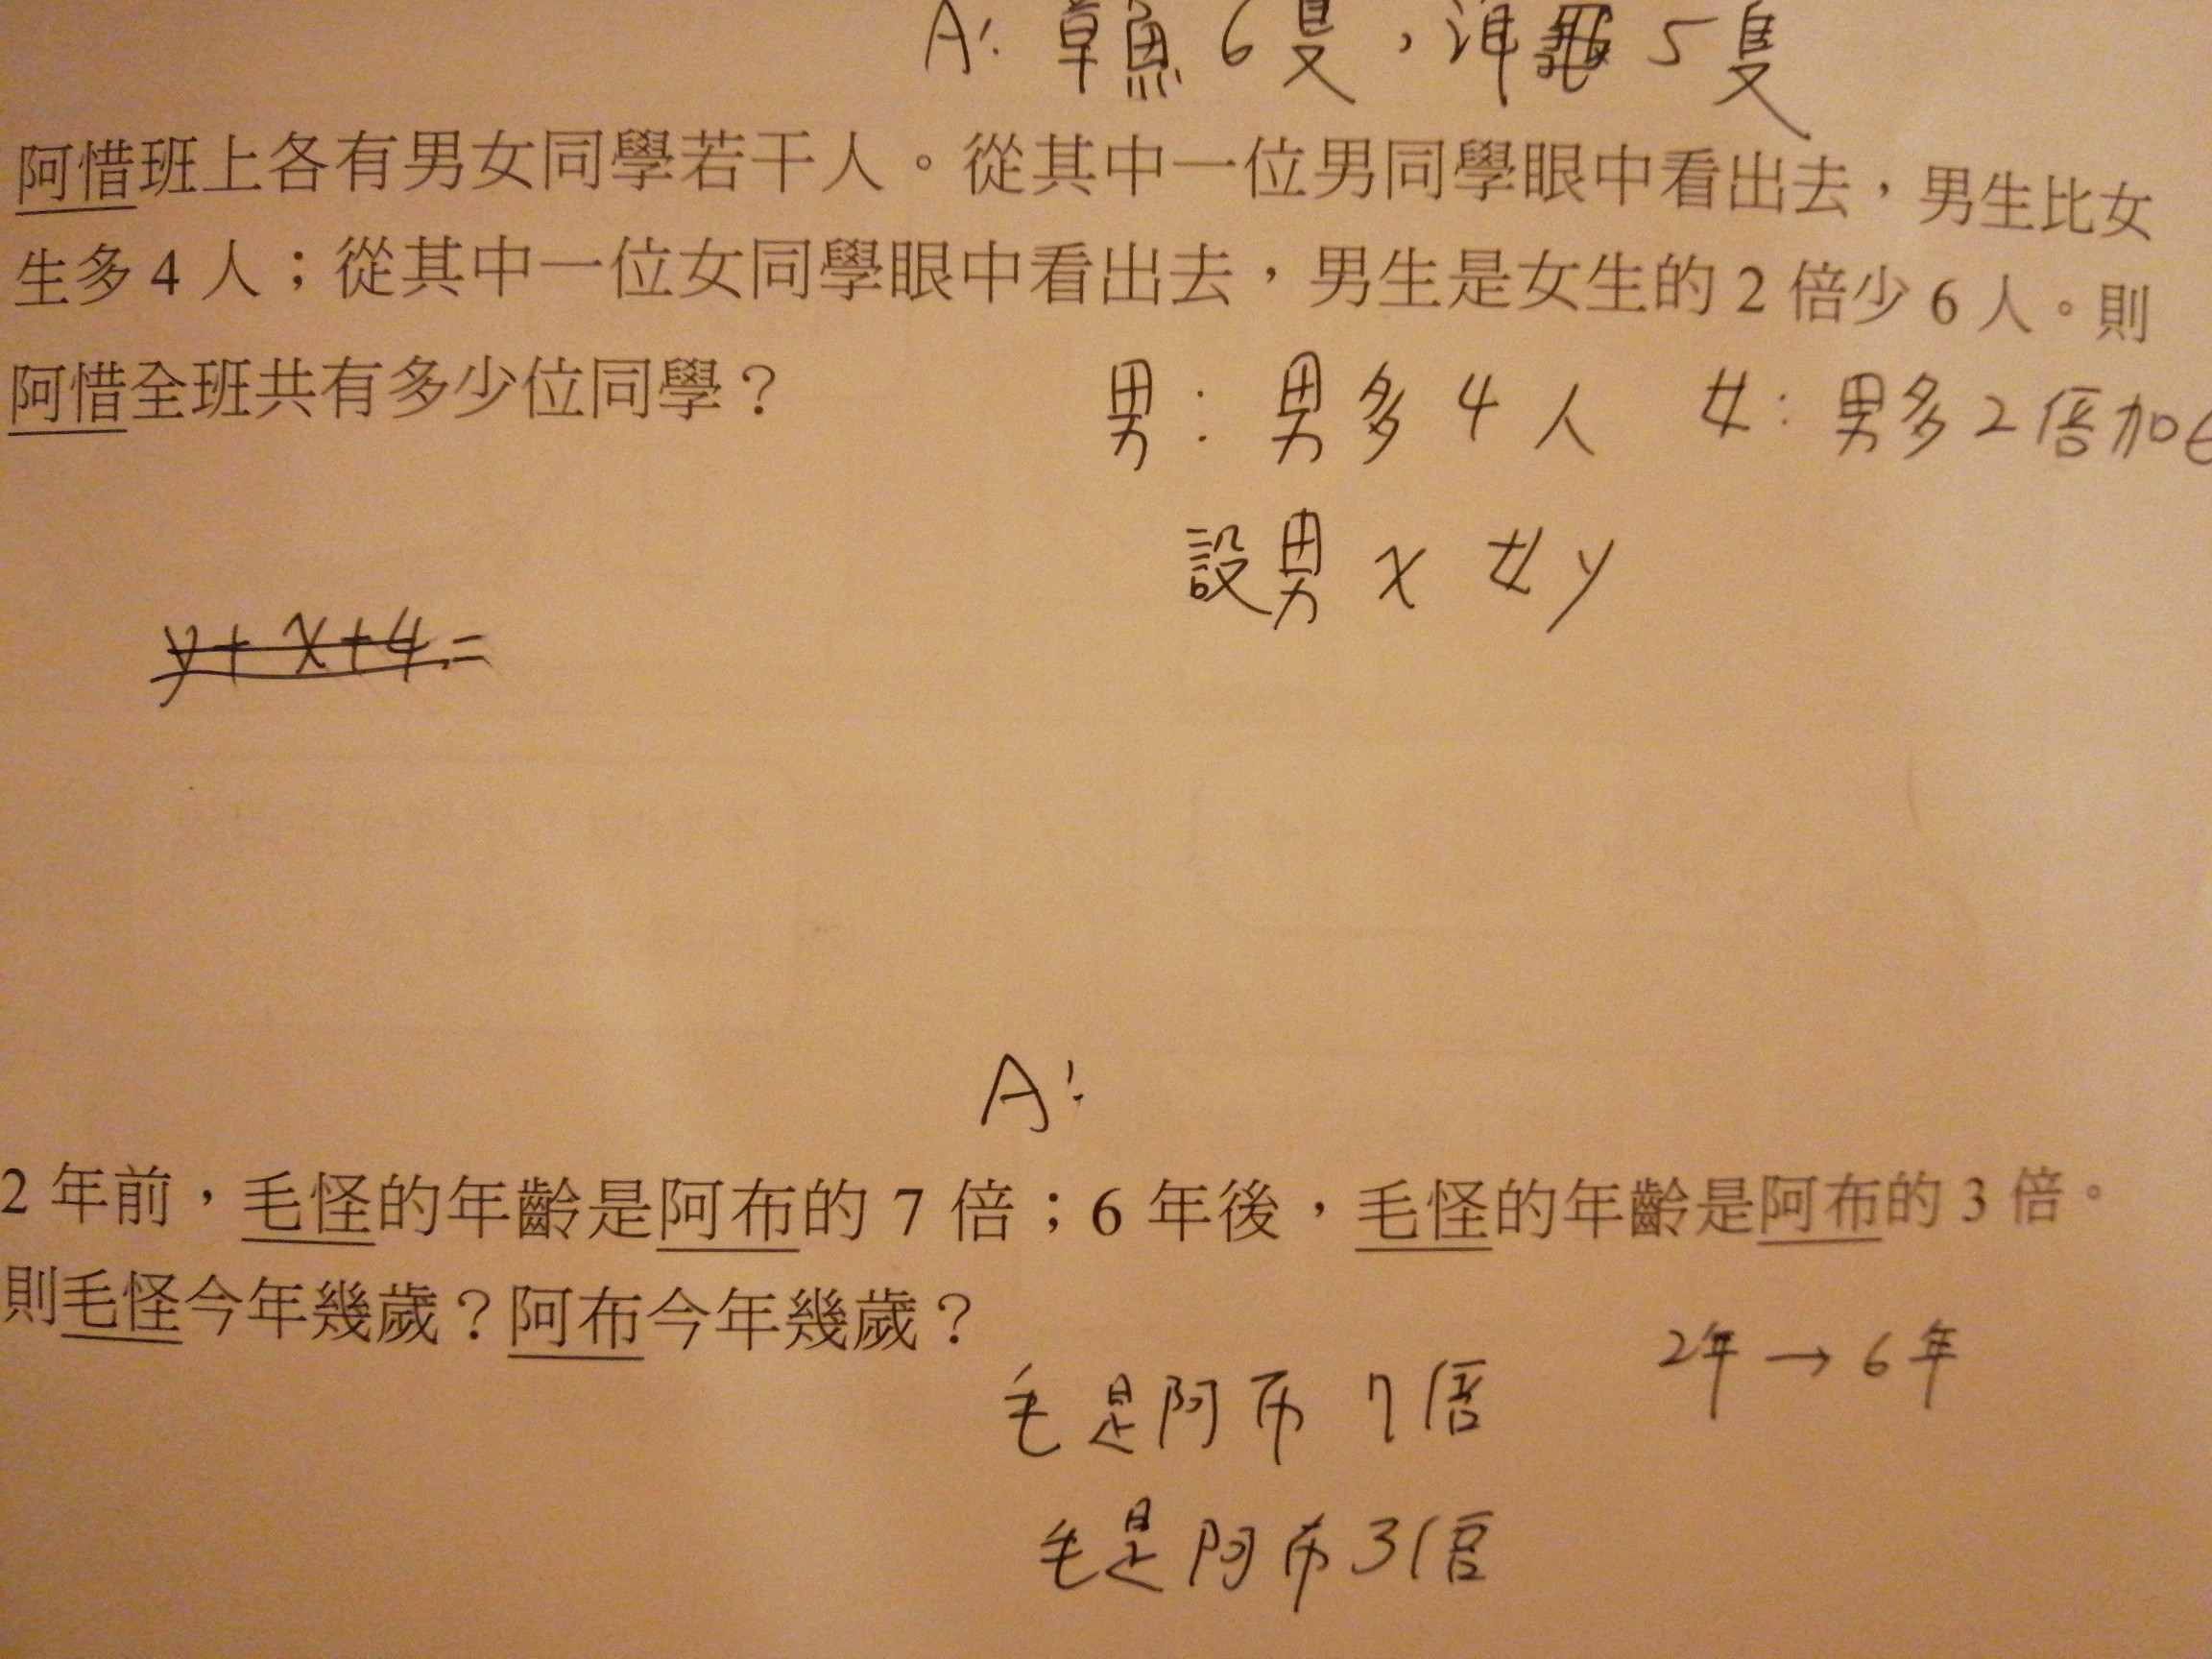 A: 草魚 6 隻，澤龜 5 隻
阿惜班上各有男女同學若干人。從其中一位男同學眼中看出去，男生比女
生多 4 人；從其中一位女同學眼中看出去，男生是女生的 2 倍少 6 人。則
阿惜全班共有多少位同學？
男：男多 4 人 女：男多 2 倍加6
設男 x 女 y
y+x+4=
A:
2 年前，毛怪的年齡是阿布的 7 倍；6 年後，毛怪的年齡是阿布的 3 倍。
則毛怪今年幾歲？阿布今年幾歲？
2年→6年
毛是阿布 7倍
毛是阿布3倍